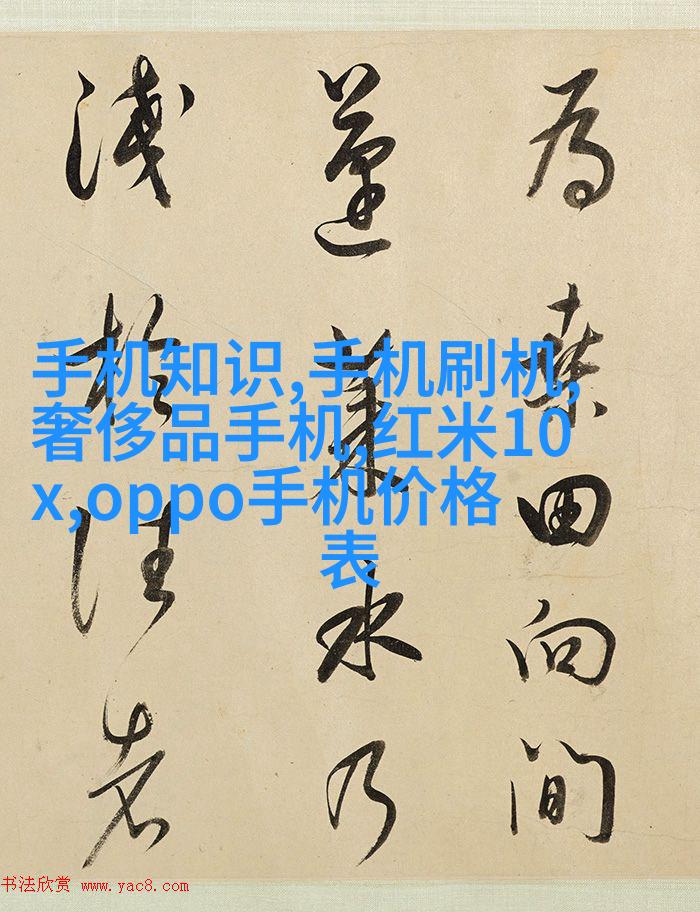 為桑田向間
蓬萊水乃
淺於往者
手机知识,手机刷机,
奢侈品手机,红米10
x,oppo手机价格
表
书法欣赏 www.yac8.com